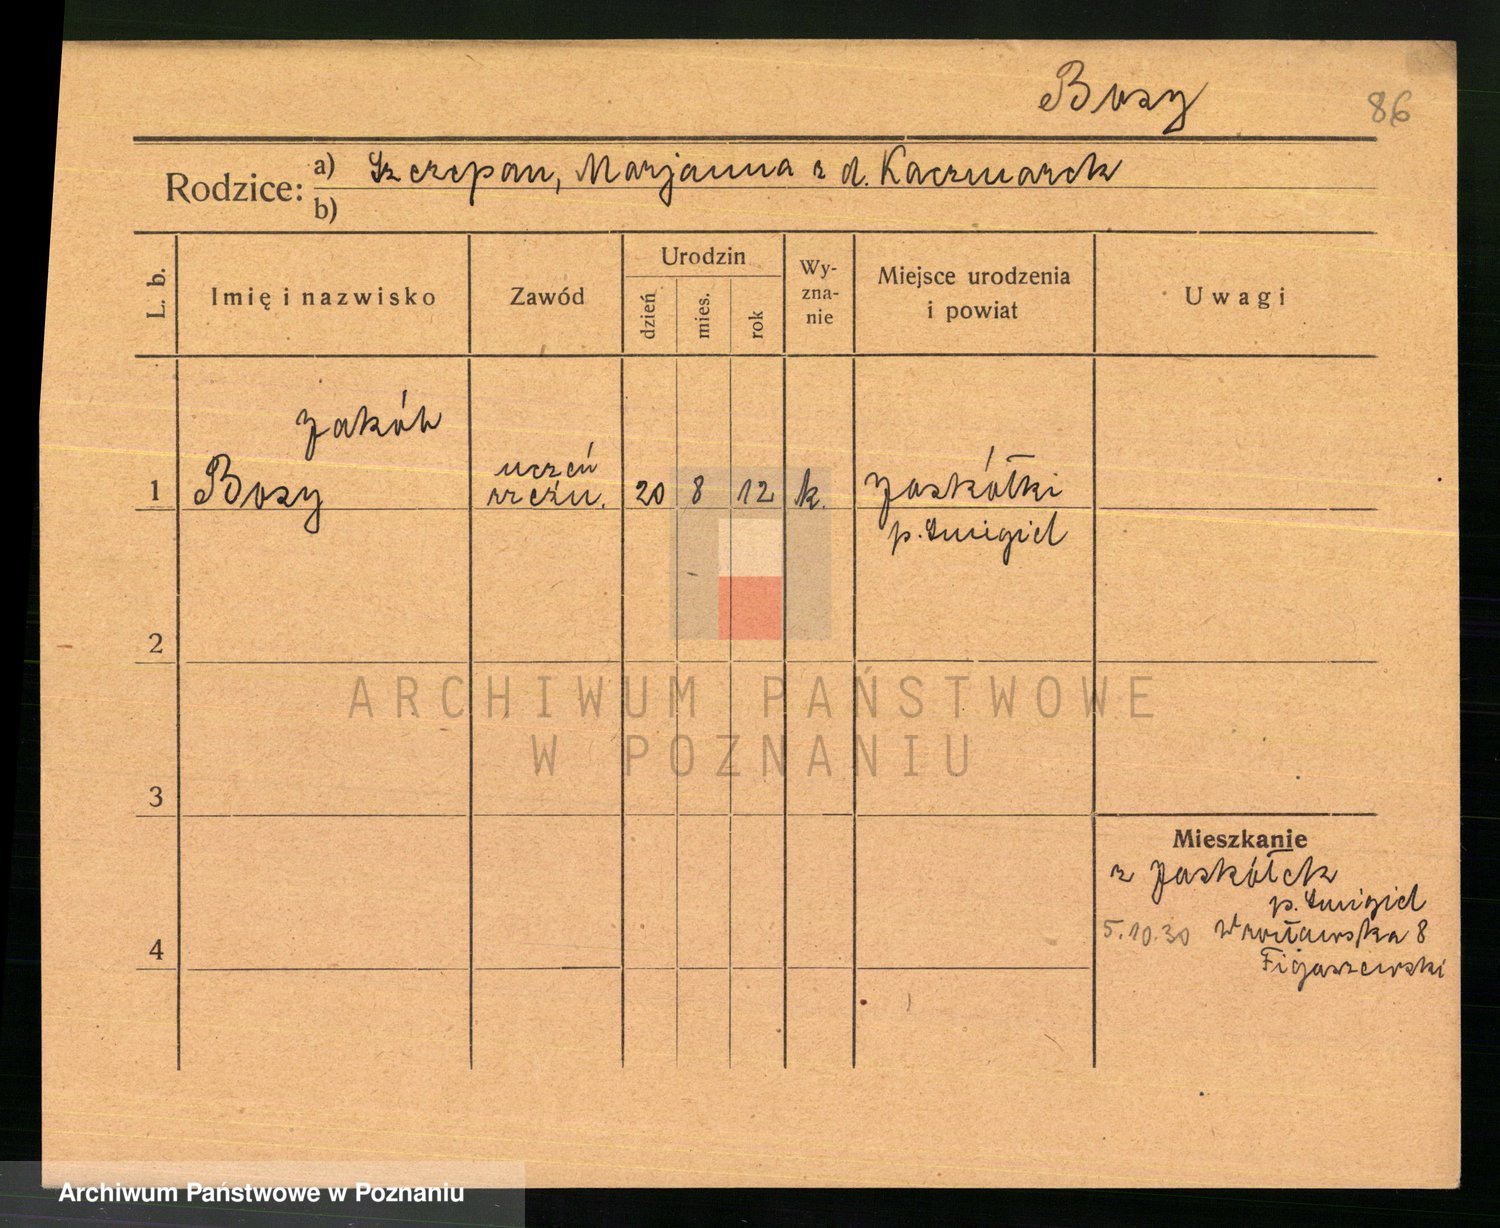 Bosy
86
Rodzice: a) Szczepan, Marjanna z d. Kaczmarek
b)
L. b.
Imię i nazwisko
Zawód
Urodzin
dzień
mies.
rok
Wy-
zna-
nie
Miejsce urodzenia
i powiat
Uwagi
Jakób
1 Bosy
uczeń
rzeźn.
20 8 12 k.
Jaskółki
p. Śmigiel
2
3
4
ARCHIWUM PAŃSTWOWE
W POZNANIU
Mieszkanie
z Jaskółek
p. Śmigiel
5.10.30 Wrocławska 8
Figaszewski
Archiwum Państwowe w Poznaniu